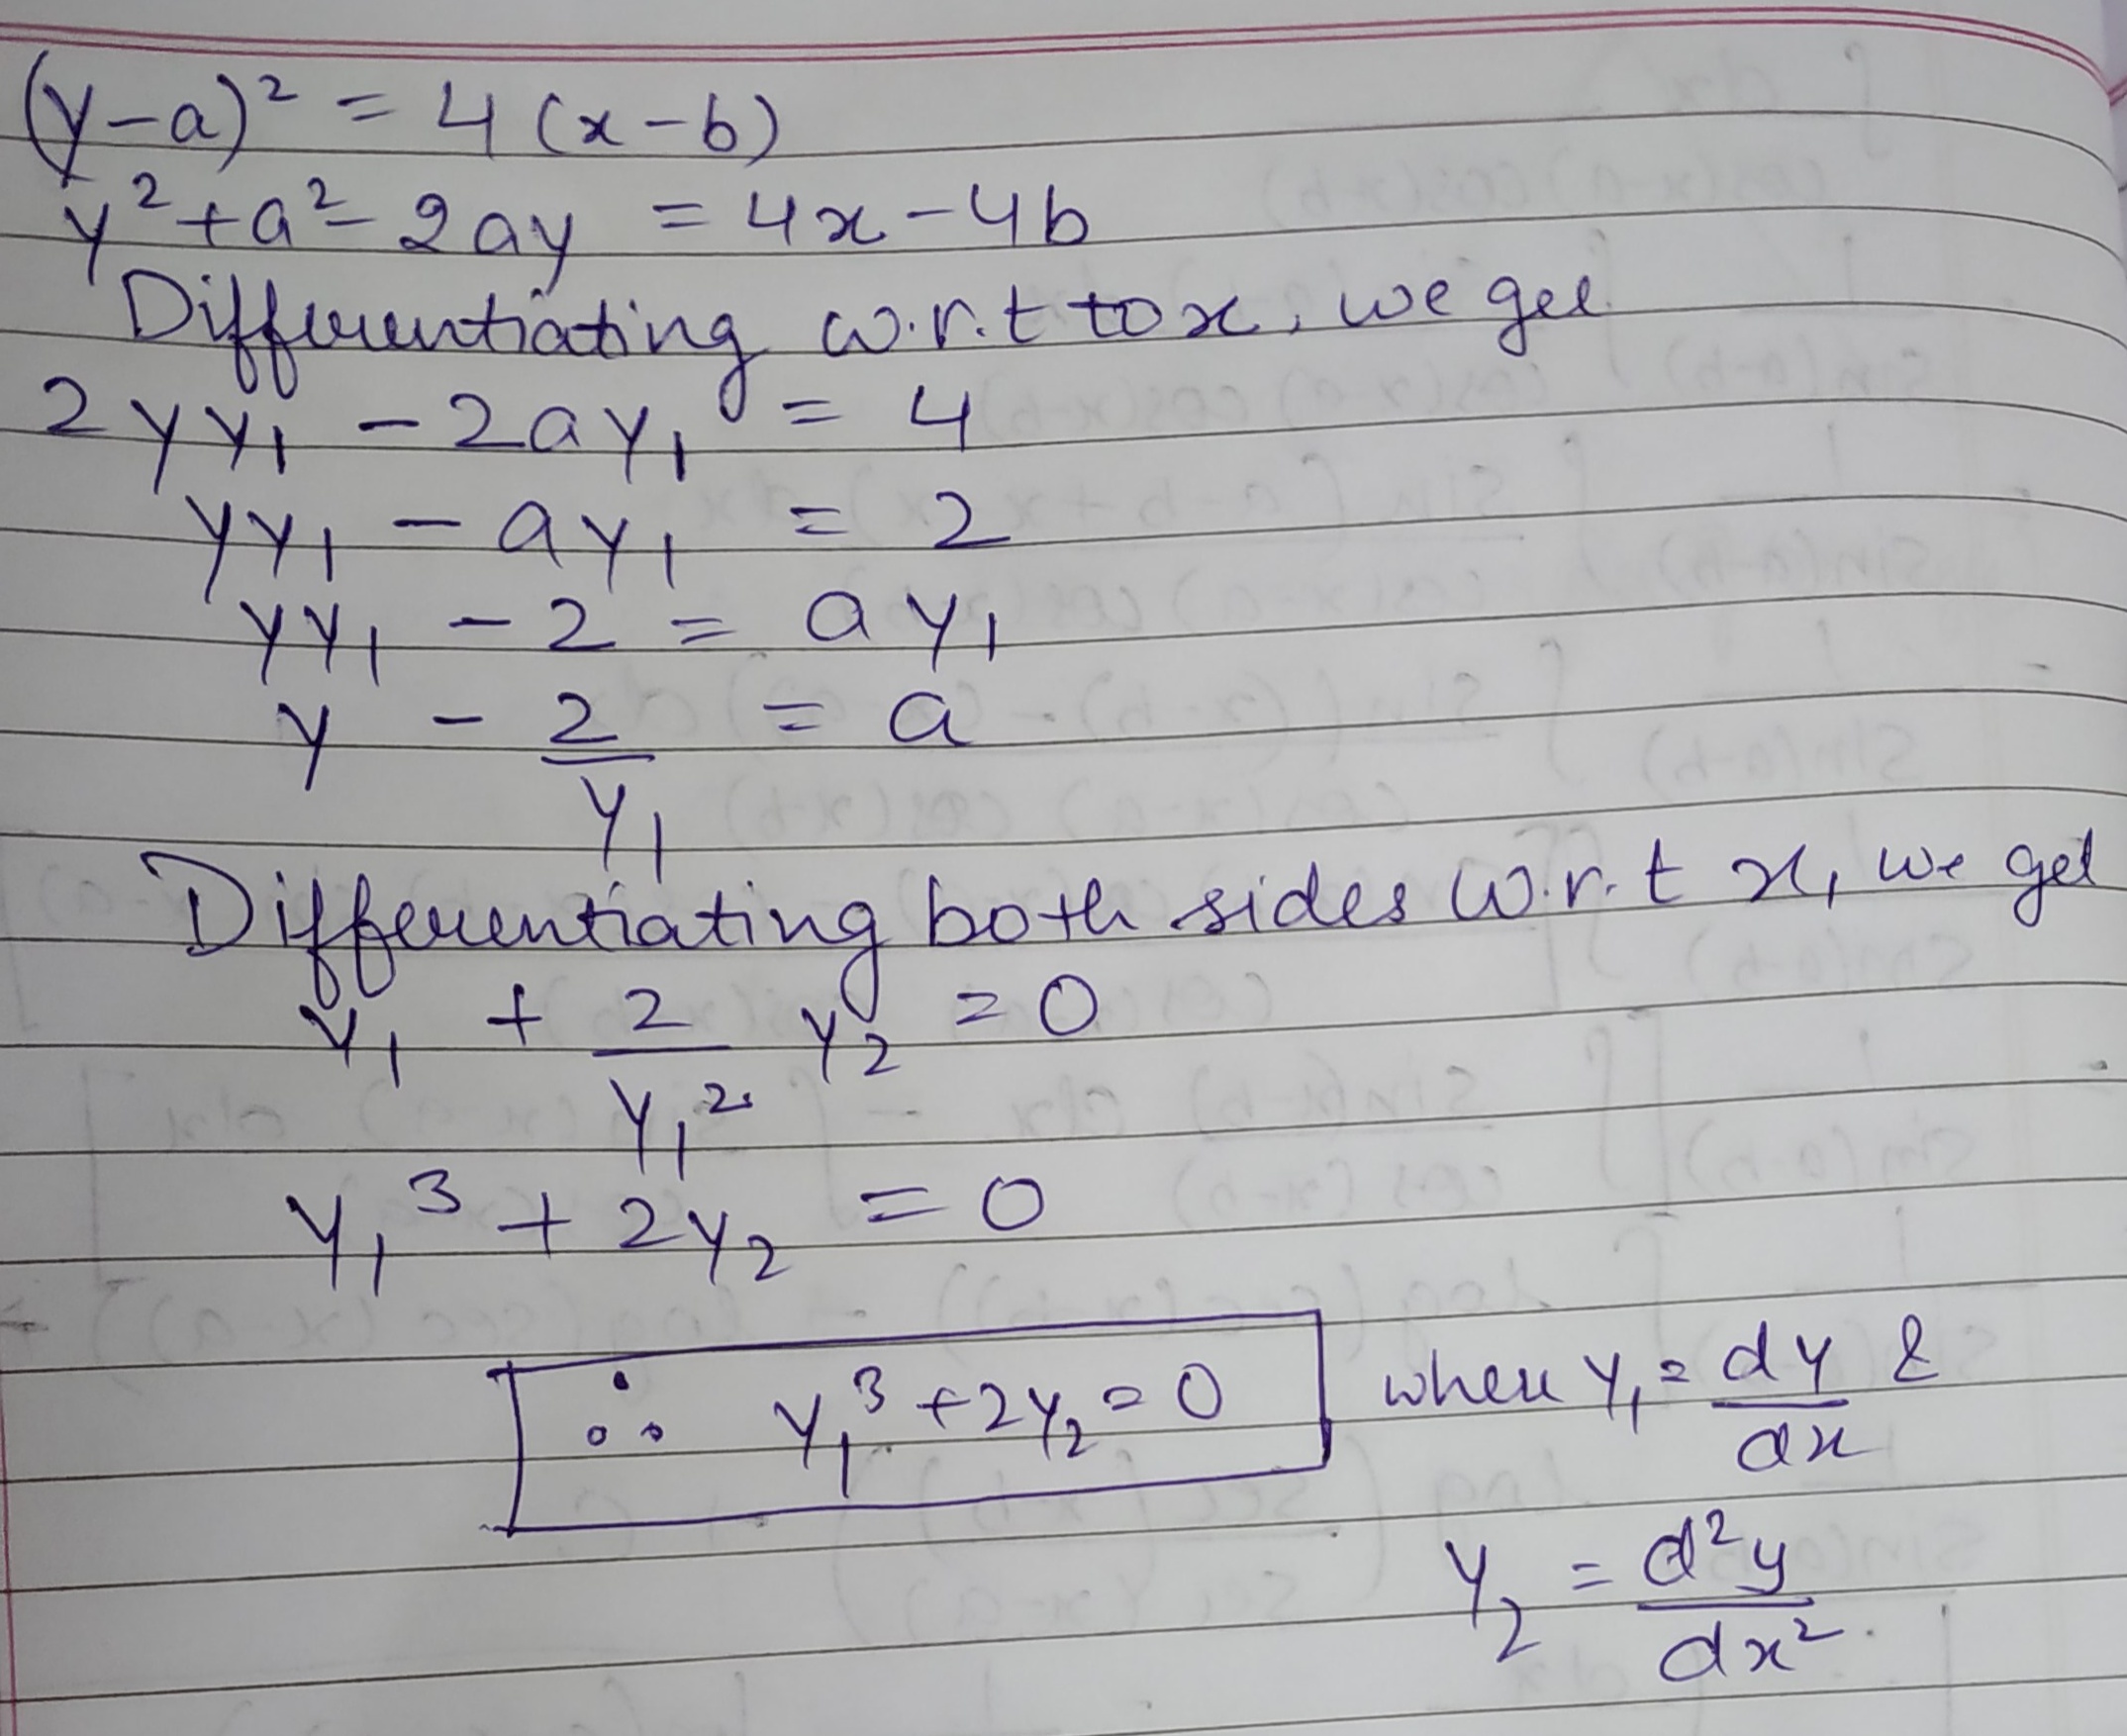 (y-a)² = 4(x-b)
y²+a²-2ay = 4x-4b
Differentiating w.r.t to x, we get
2yy₁ - 2ay₁ = 4
yy₁ - ay₁ = 2
yy₁ - 2 = ay₁
y - 2/y₁ = a
Differentiating both sides w.r.t x, we get
y₁ + 2/y₁² y₂ = 0
y₁³ + 2y₂ = 0
∴ y₁³+2y₂=0 when y₁ = dy/dx &
y₂ = d²y/dx².